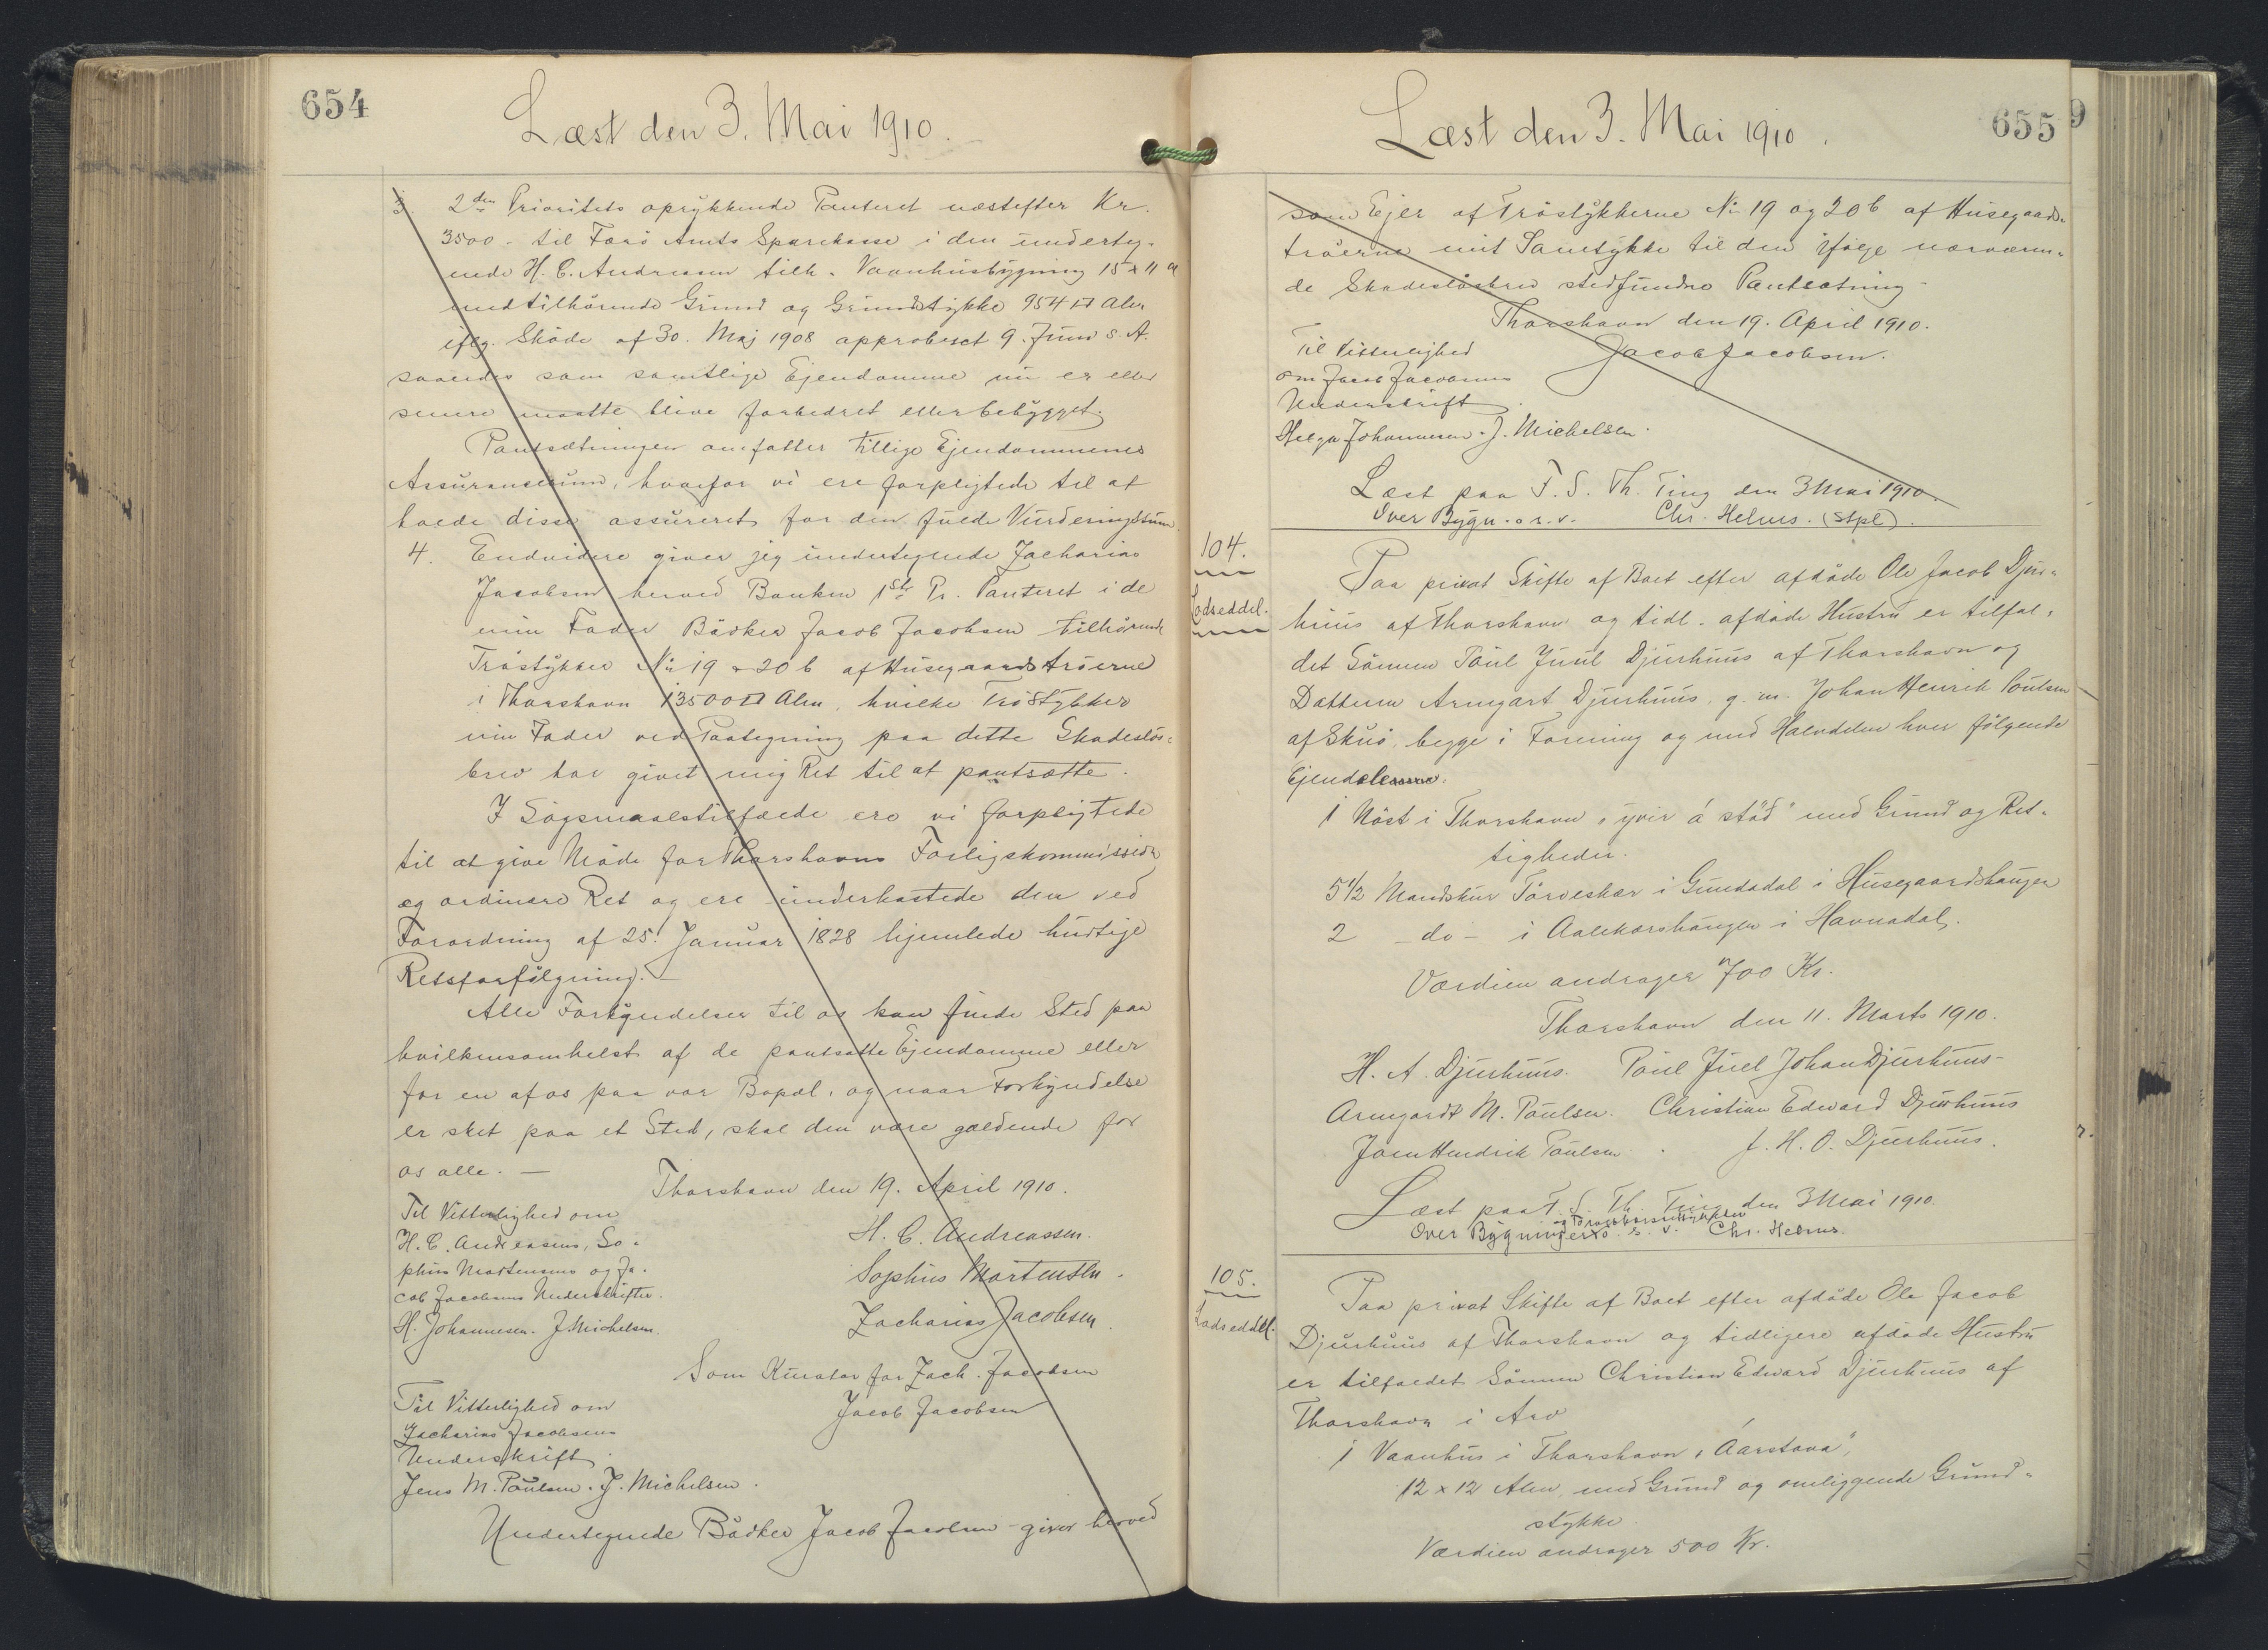 654
Læst den 3. Mai 1910.
3. 2den Prioritets oprykkende Panteret næstefter Kr.
3500 - til Færø Amts Sparekasse i den underteg-
nede H. C. Andreasen tilh. Vaanhusbygning 15 x 11 a
med tilhörende Grund og Grundstykke 954 □ Alen
iflg. Sköde af 30. Maj 1908 approberet 9. Juni s. A.
saaledes som samtlige Ejendomme nu er eller
senere maatte blive forbedret eller bebygget.
Pantsætningen omfatter tillige Ejendommenes
Assurancesum, hvorfor vi ere forpligtede til at
holde disse assureret for den fulde Vurderingssum
4. Endvidere giver jeg undertegnede Zacharias
Jacobsen herved Banken 1ste Pr. Panteret i de
min Fader Bödker Jacob Jacobsen tilhörende
Tröstykker No 19 & 20 b af Husegaards tröerne
i Thorshavn 13500 □ Alen, hvilke Tröstykker
min Fader ved Paategning paa dette Skadeslös-
brev har givet mig Ret til at pantsætte.
I Sögsmaalstilfælde ere vi forpligtede
til at give Möde for Thorshavns Forligskommission
og ordinære Ret og ere underkastede den ved
Forordning af 25. Januar 1828 hjemlede hurtige
Retsforfölgning. —
Alle Forkyndelser til os kan finde Sted paa
hvilkensomhelst af de pantsatte Ejendomme eller
for en af os paa vor Bopæl, og naar Forkyndelse
er sket paa et Sted, skal den være gældende for
os alle. —
Thorshavn den 19. April 1910.
Til Vitterlighed om
H. C. Andreasens, So-
phus Mortensens og Ja-
cob Jacobsens Underskrifter.
H. Johannesen. J. Michelsen.
H. C. Andreassen.
Sophus Mortensen.
Zacharias Jacobsen.
Som Kurator for Zach. Jacobsen
Jacob Jacobsen
Til Vitterlighed om
Zacharias Jacobsens
Underskrift
Jens M. Poulsen. J. Michelsen.
Undertegnede Bödker Jacob Jacobsen - giver herved
655
9
Læst den 3. Mai 1910.
som Ejer af Tröstykkerne No 19 og 20 b af Husegaards-
tröerne mit Samtykke til den ifølge nærværen-
de Skadeslösbrev stedfundne Pantsætning -
Thorshavn den 19. April 1910.
Jacob Jacobsen.
Til Vitterlighed
om Jacob Jacobsens
Underskrift
Helga Johannesen. J. Michelsen.
Læst paa F. S. Th. Ting den 3 Mai 1910.
Over Bygn. o. s. v. Chr. Helms. (Stpl).
104.
Lodseddel.
Paa privat Skifte af Boet efter afdöde Ole Jacob Djur-
huus af Thorshavn og tidl. afdöde Hustru er tilfal-
det Sönnen Poul Juul Djurhuus af Thorshavn og
Datteren Armgart Djurhuus, g. m. Johan Henrik Poulsen
af Skuö, begge i Forening og med Halvdelen hver fölgende
Ejendele
1 Nöst i Thorshavn "yvir á stöð" med Grund og Ret-
tigheder.
5 1/2 Mandskur Törveskær i Gundadal i Husegaardshaugen
2 - do - i Aalekærshaugen i Havnadal.
Værdien andrager 700 Kr.
Thorshavn den 11. Marts 1910.
H. A. Djurhuus. Poul Juel Johan Djurhuus -
Armgardt M. Poulsen. Christian Edward Djurhuus
Joen Hendrik Poulsen. J. H. O. Djurhuus.
Læst paa F. S. Th. Ting den 3 Mai 1910.
Over Bygninger o. s. v. Chr. Helms.
105.
Lodseddel.
Paa privat Skifte af Boet efter afdöde Ole Jacob
Djurhuus af Thorshavn og tidligere afdöde Hustru
er tilfaldet Sönnen Christian Edward Djurhuus af
Thorshavn i Arv
1 Vaanhus i Thorshavn "Áarstova",
12 x 12 Alen, med Grund og omliggende Grund-
stykke.
Værdien andrager 500 Kr.